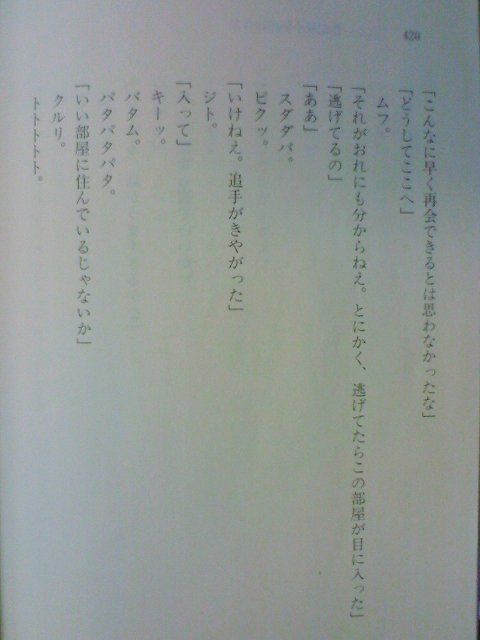 420
「こんなに早く再会できるとは思わなかったな」
「どうしてここへ」
ムフ。
「それがおれにも分からねえ。とにかく、逃げてたらこの部屋が目に入った」
「逃げてるの」
「ああ」
スダダバ。
ピクッ。
「いけねえ。追手がきやがった」
ジト。
「入って」
キーッ。
バタム。
バタバタバタ。
「いい部屋に住んでいるじゃないか」
クルリ。
トトトトト。